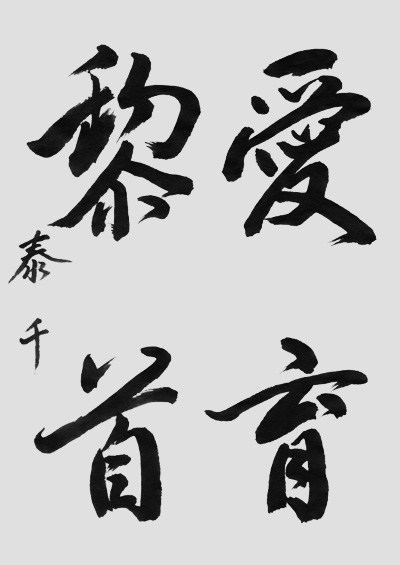 愛育
黎首
泰千